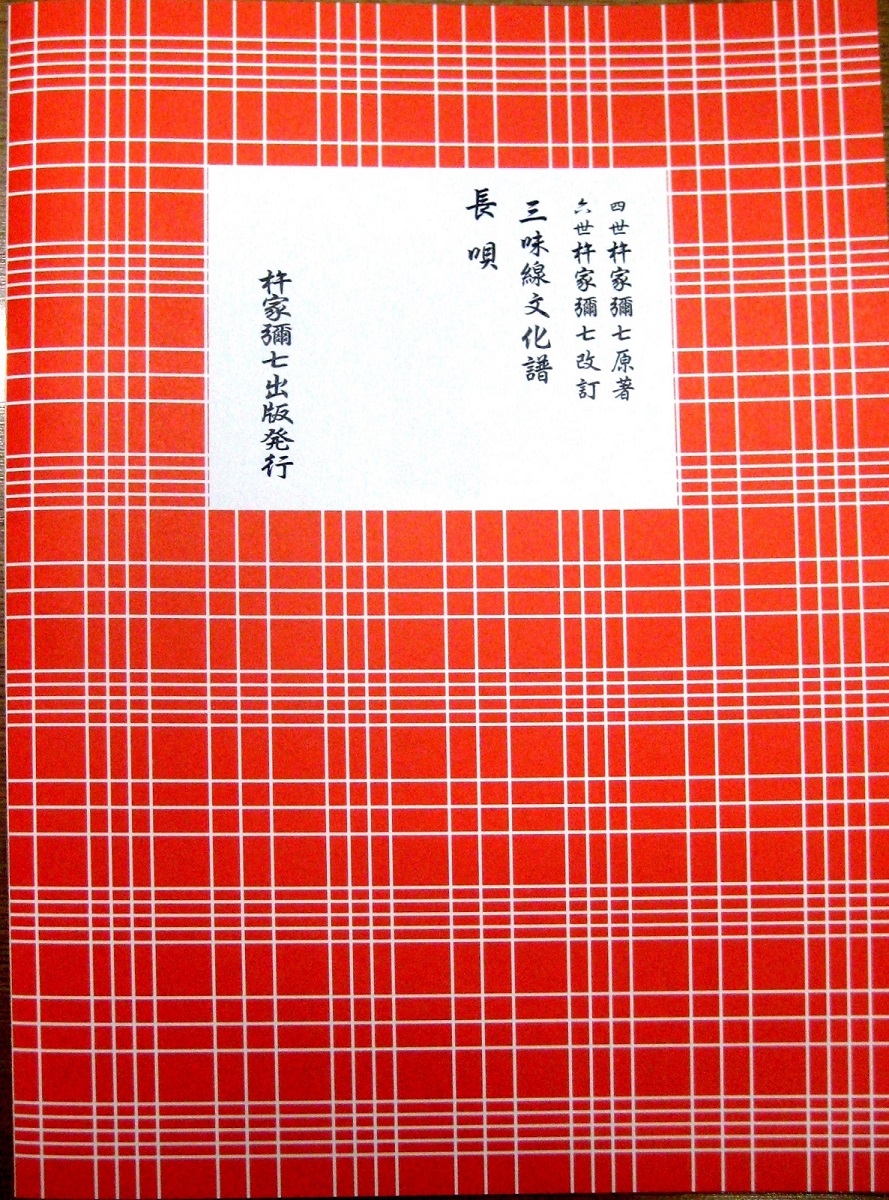 四世杵家彌七原著
六世杵家彌七改訂
三味線文化譜
長唄
杵家彌七出版発行